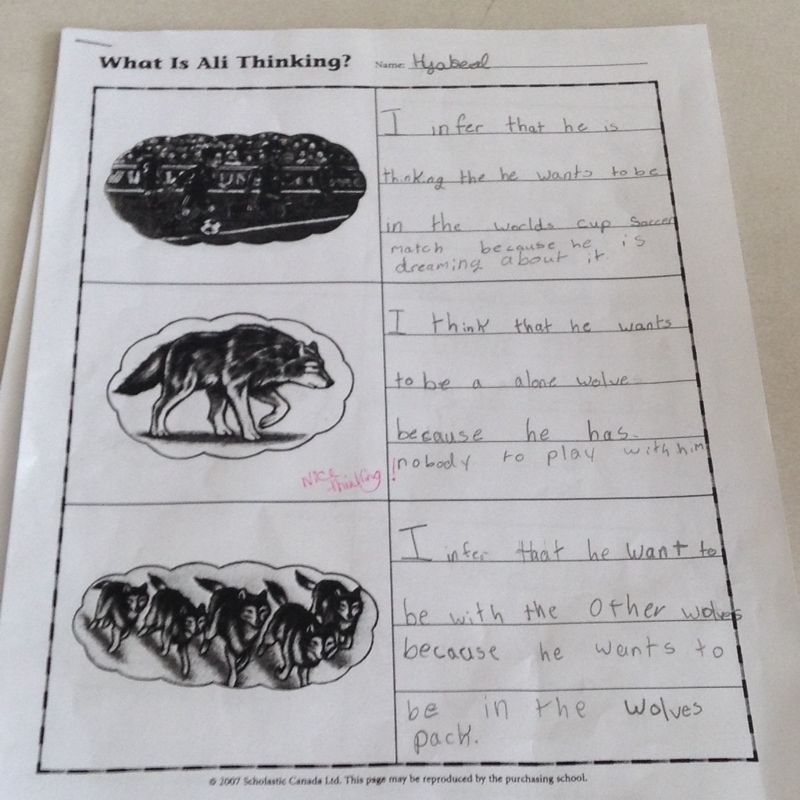 What Is Ali Thinking?
Name:
I infer that he is
thinkng the he wants to be
in the worlds cup soccer
match because he is
dreaming about it.
I think that he wants
to be a alone wolve
because he has.
nobody to play with him
NICE
thinking!
I infer that he want to
be with the other wolves
because he wants to
be in the wolves
pack.
© 2007 Scholastic Canada Ltd. This page may be reproduced by the purchasing school.